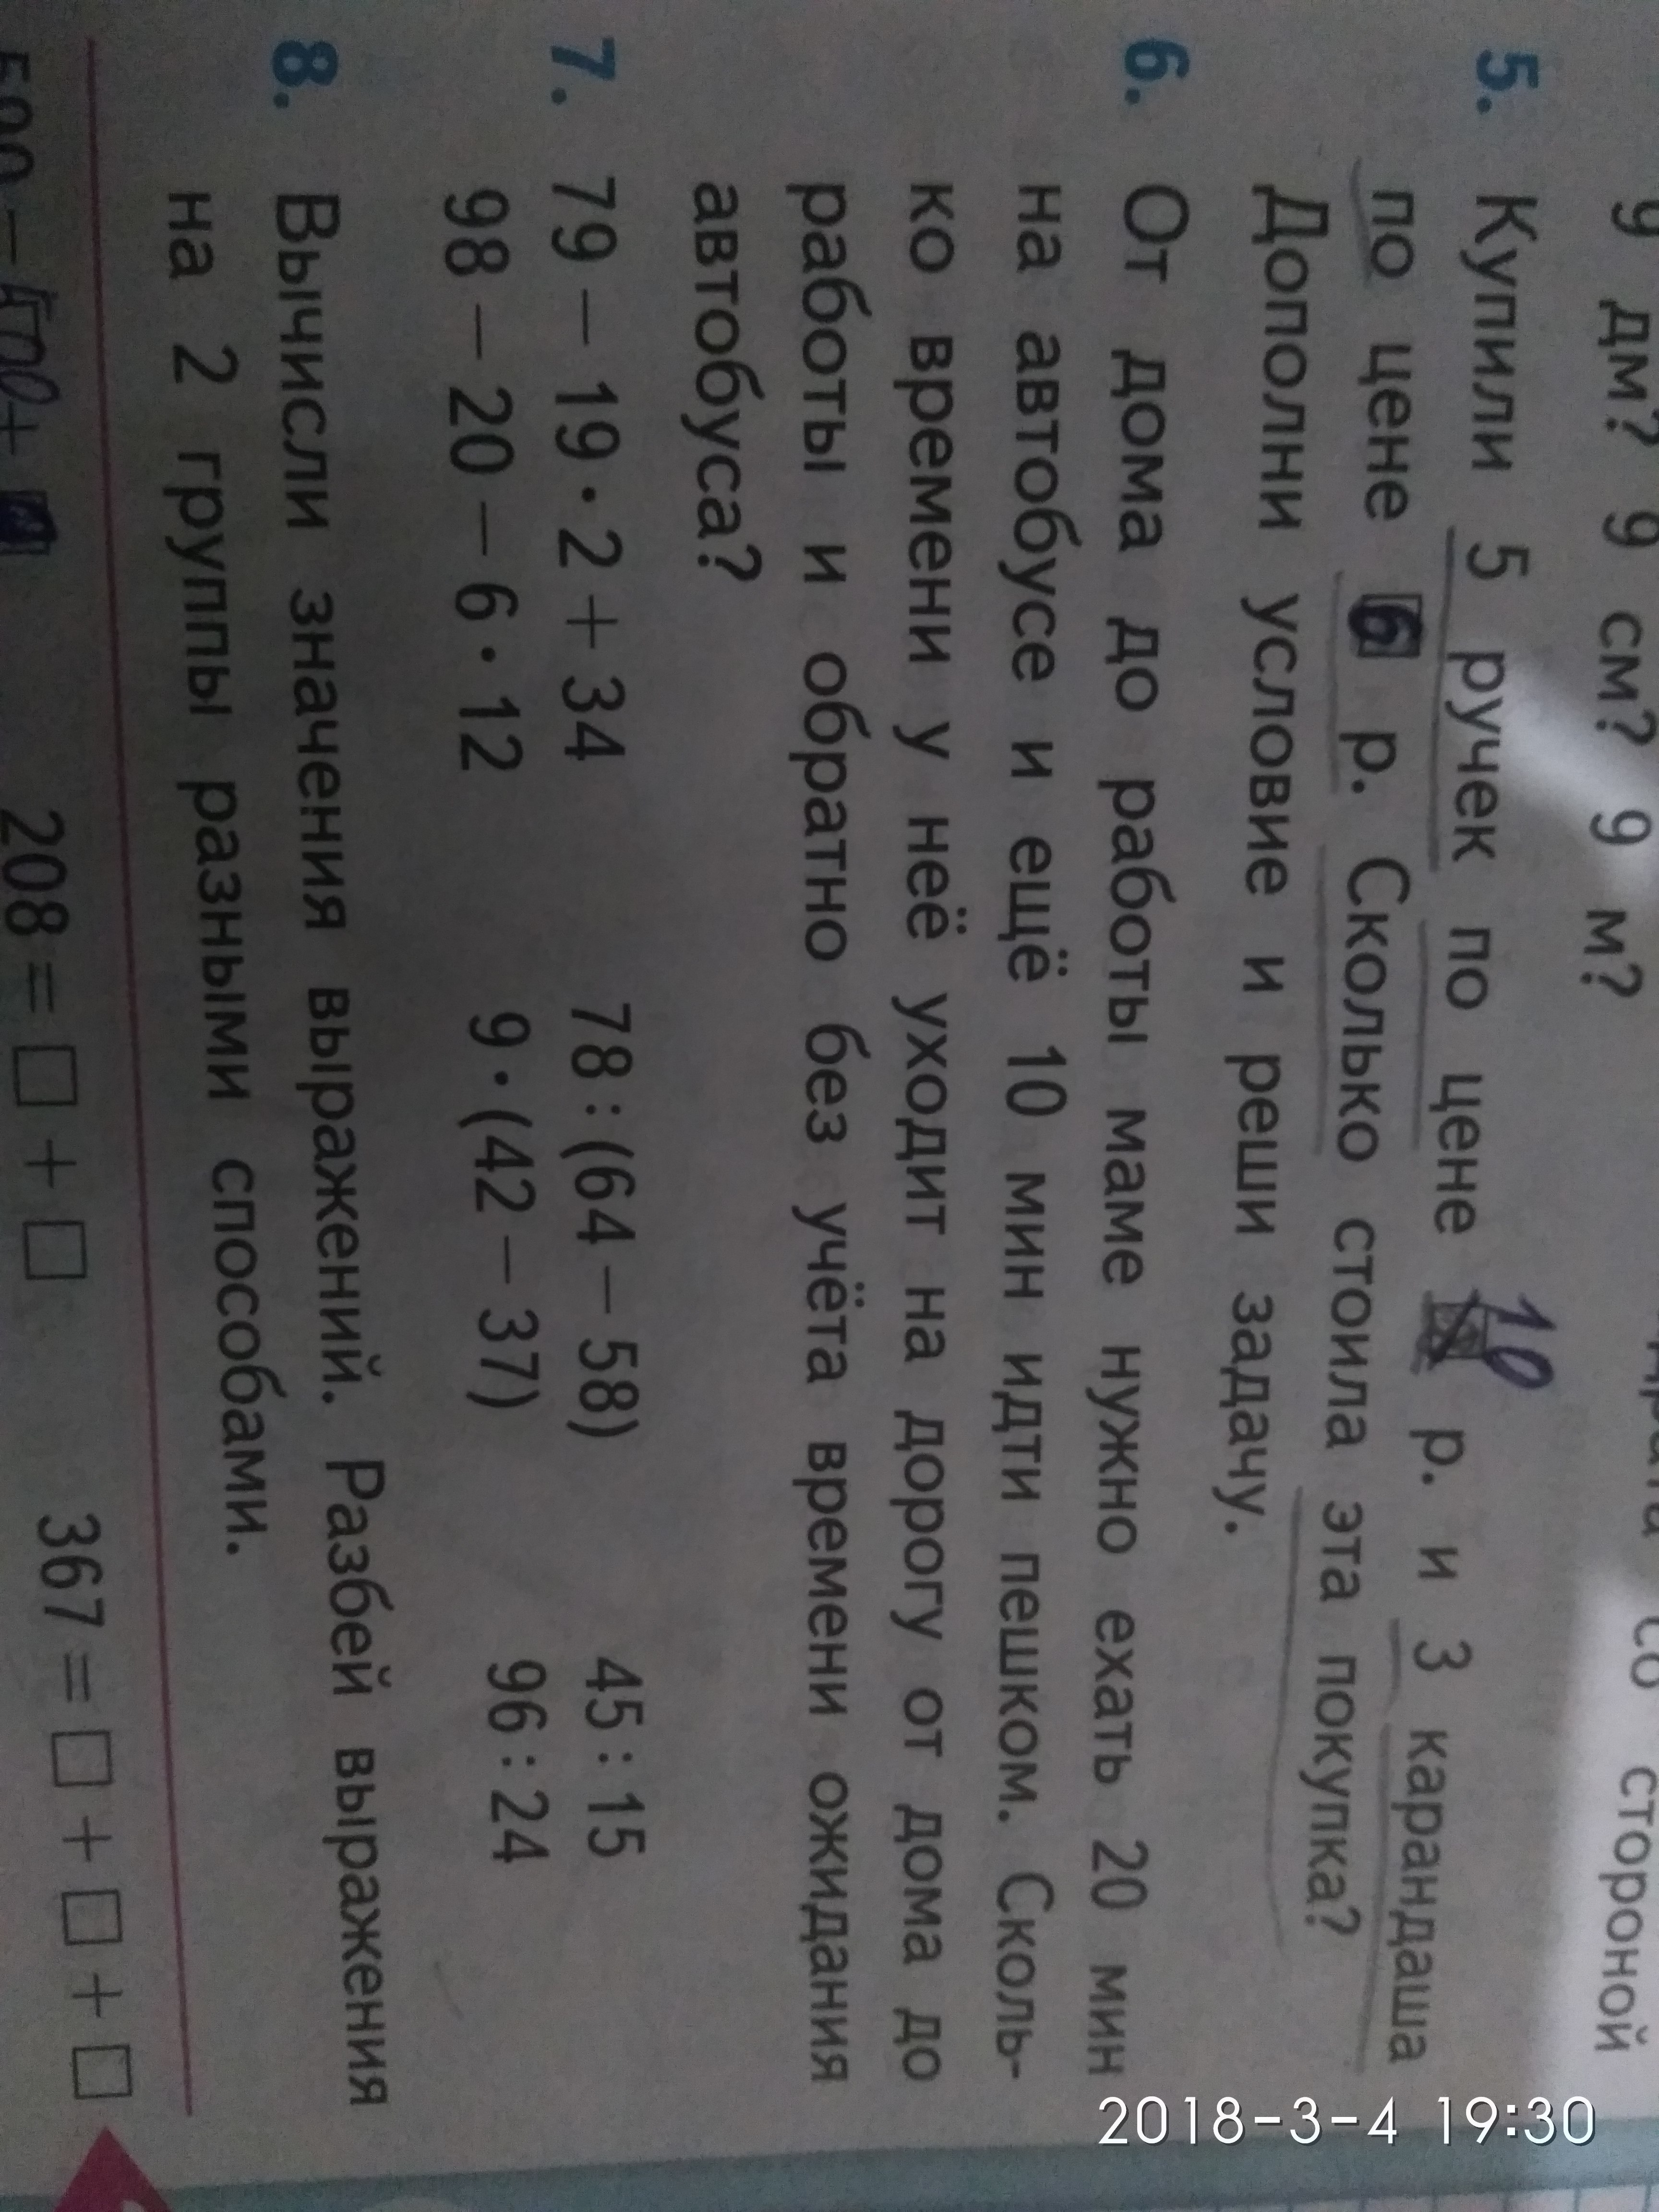 9 дм? 9 см? 9 м?
со стороной
5. Купили 5 ручек по цене 10 р. и 3 карандаша
по цене 6 р. Сколько стоила эта покупка?
Дополни условие и реши задачу.
6. От дома до работы маме нужно ехать 20 мин
на автобусе и ещё 10 мин идти пешком. Сколь-
ко времени у неё уходит на дорогу от дома до
работы и обратно без учёта времени ожидания
автобуса?
7. 79 – 19 · 2 + 34 78 : (64 – 58) 45 : 15
98 – 20 – 6 · 12 9 · (42 – 37) 96 : 24
8. Вычисли значения выражений. Разбей выражения
на 2 группы разными способами.
208 = □ + □ 367 = □ + □ + □
2018-3-4 19:30